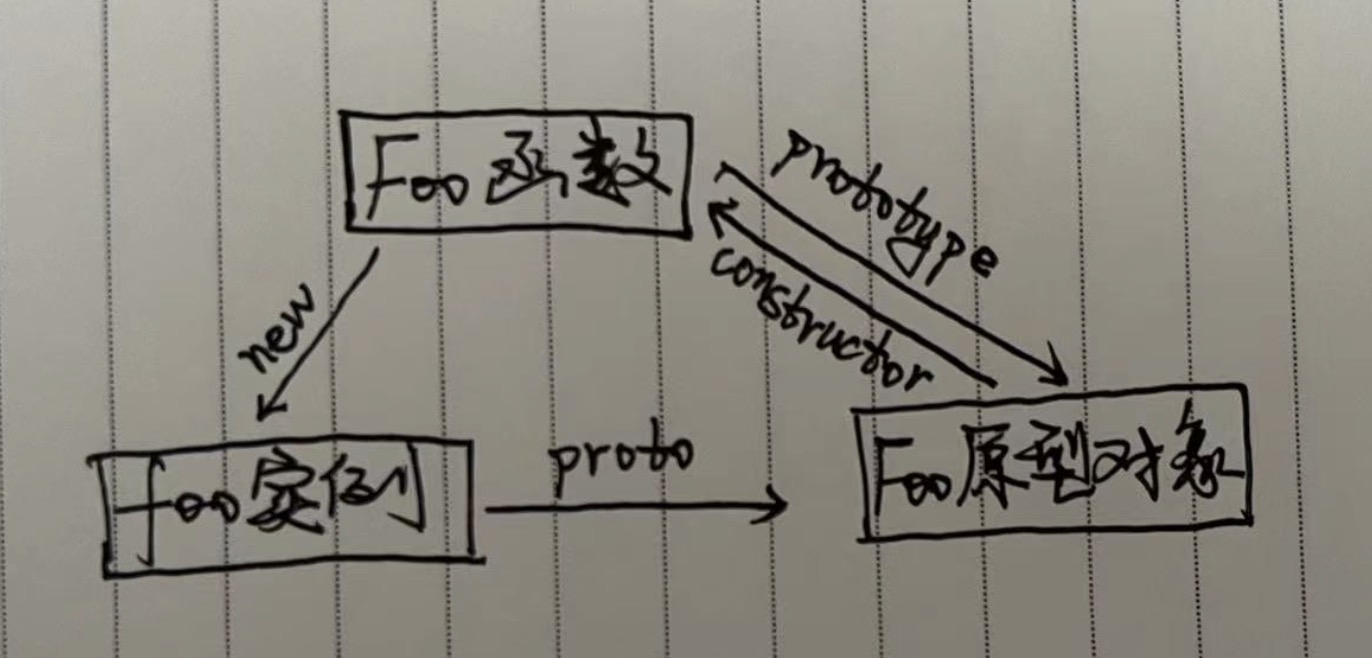 Foo函数
prototype
constructor
new
proto
foo实例
Foo原型对象